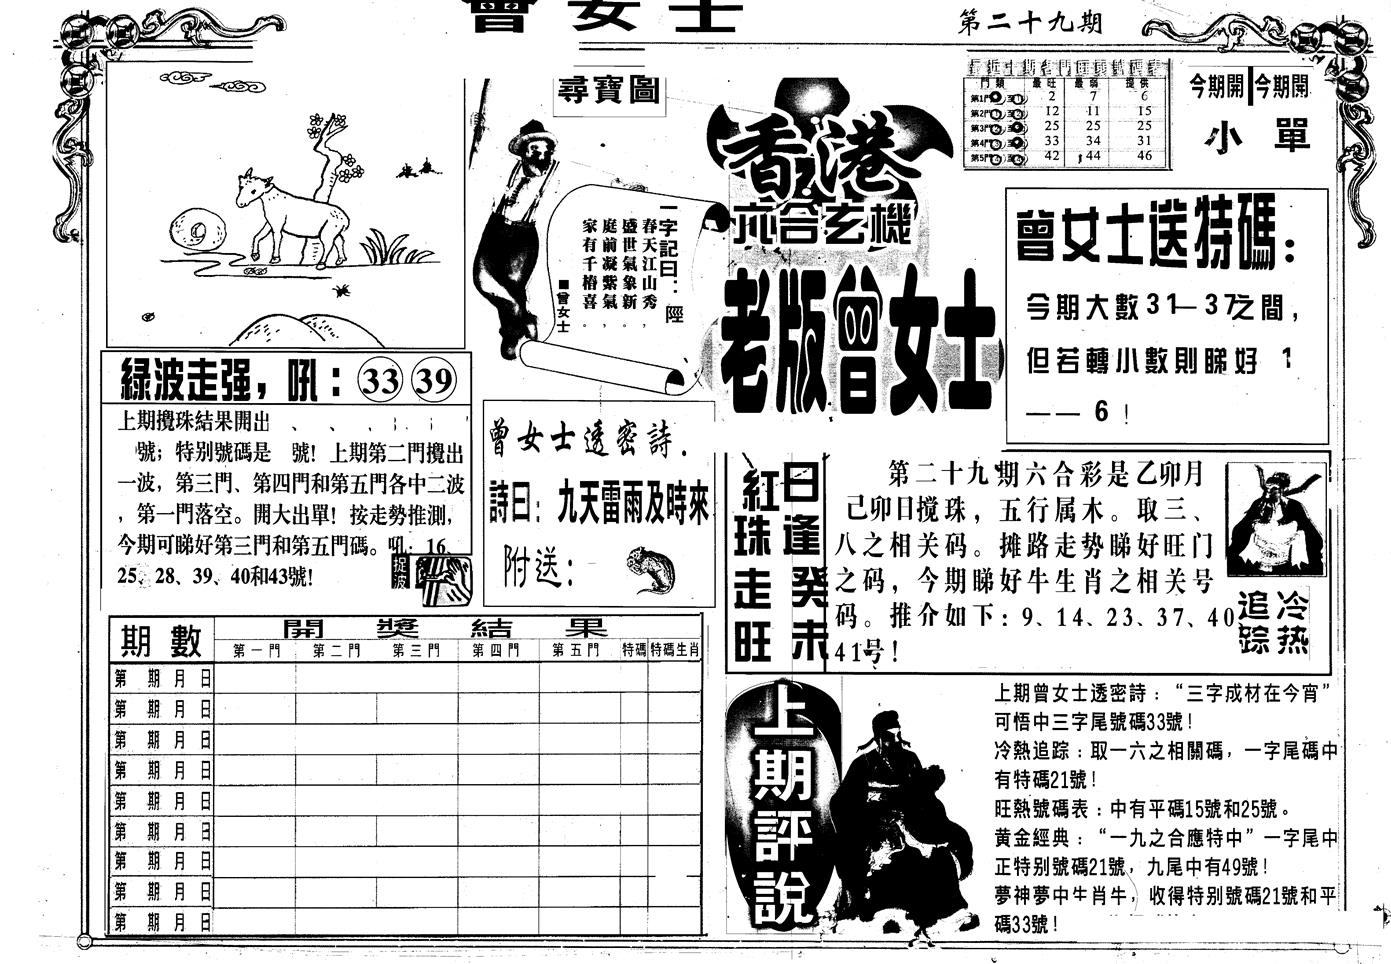 曾女士
第二十九期
尋寶圖
一字記曰：陘
春天江山秀，
盛世氣象新。
庭前凝紫氣，
家有千樁喜。
■曾女士
香港
六合玄機
老版曾女士
門類 最旺 最弱 提供
第1門 2 7 6
第2門 12 11 15
第3門 25 25 25
第4門 33 34 31
第5門 42 44 46
今期開 今期開
小 單
曾女士送特碼：
今期大數31—37之間，
但若轉小數則睇好 1
——6！
綠波走强，吼：33 39
上期攪珠結果開出
號；特别號碼是 號！上期第二門攪出
一波，第三門、第四門和第五門各中二波
，第一門落空。開大出單！按走勢推測，
今期可睇好第三門和第五門碼。吼：16、
25、28、39、40和43號！
捉波
曾女士透密詩.
詩曰：九天雷雨及時來
附送：
日逢癸未
紅珠走旺
第二十九期六合彩是乙卯月
己卯日搅珠，五行属木。取三、
八之相关码。摊路走势睇好旺门
之码，今期睇好牛生肖之相关号
码。推介如下：9、14、23、37、40
41号！
冷热
追踪
期數 開獎結果
第一門 第二門 第三門 第四門 第五門 特碼 特碼生肖
第 期 月 日
第 期 月 日
第 期 月 日
第 期 月 日
第 期 月 日
第 期 月 日
第 期 月 日
第 期 月 日
第 期 月 日
上期評說
上期曾女士透密詩：“三字成材在今宵”
可悟中三字尾號碼33號！
冷熱追踪：取一六之相關碼，一字尾碼中
有特碼21號！
旺熱號碼表：中有平碼15號和25號。
黄金經典：“一九之合應特中”一字尾中
正特别號碼21號，九尾中有49號！
夢神夢中生肖牛，收得特别號碼21號和平
碼33號！